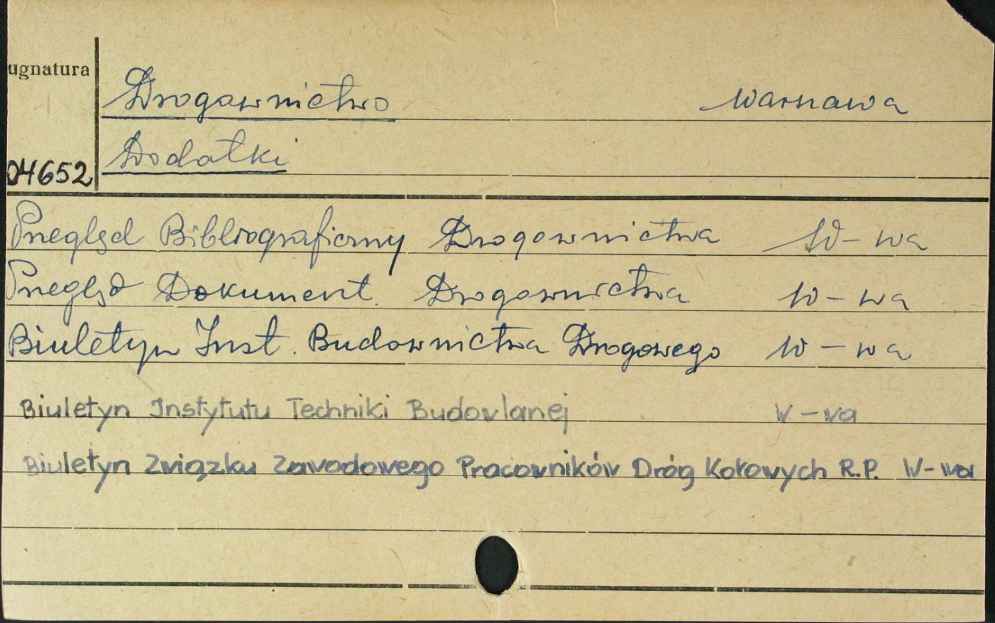 ygnatura
Drogownictwo Warszawa
Dodatki
04652
Przegląd Bibliograficzny Drogownictwa W-wa
Przegląd Dokument. Drogownictwa W-wa
Biuletyn Inst. Budownictwa Drogowego W-wa
Biuletyn Instytutu Techniki Budowlanej W-wa
Biuletyn Związku Zawodowego Pracowników Dróg Kołowych R.P. W-wa